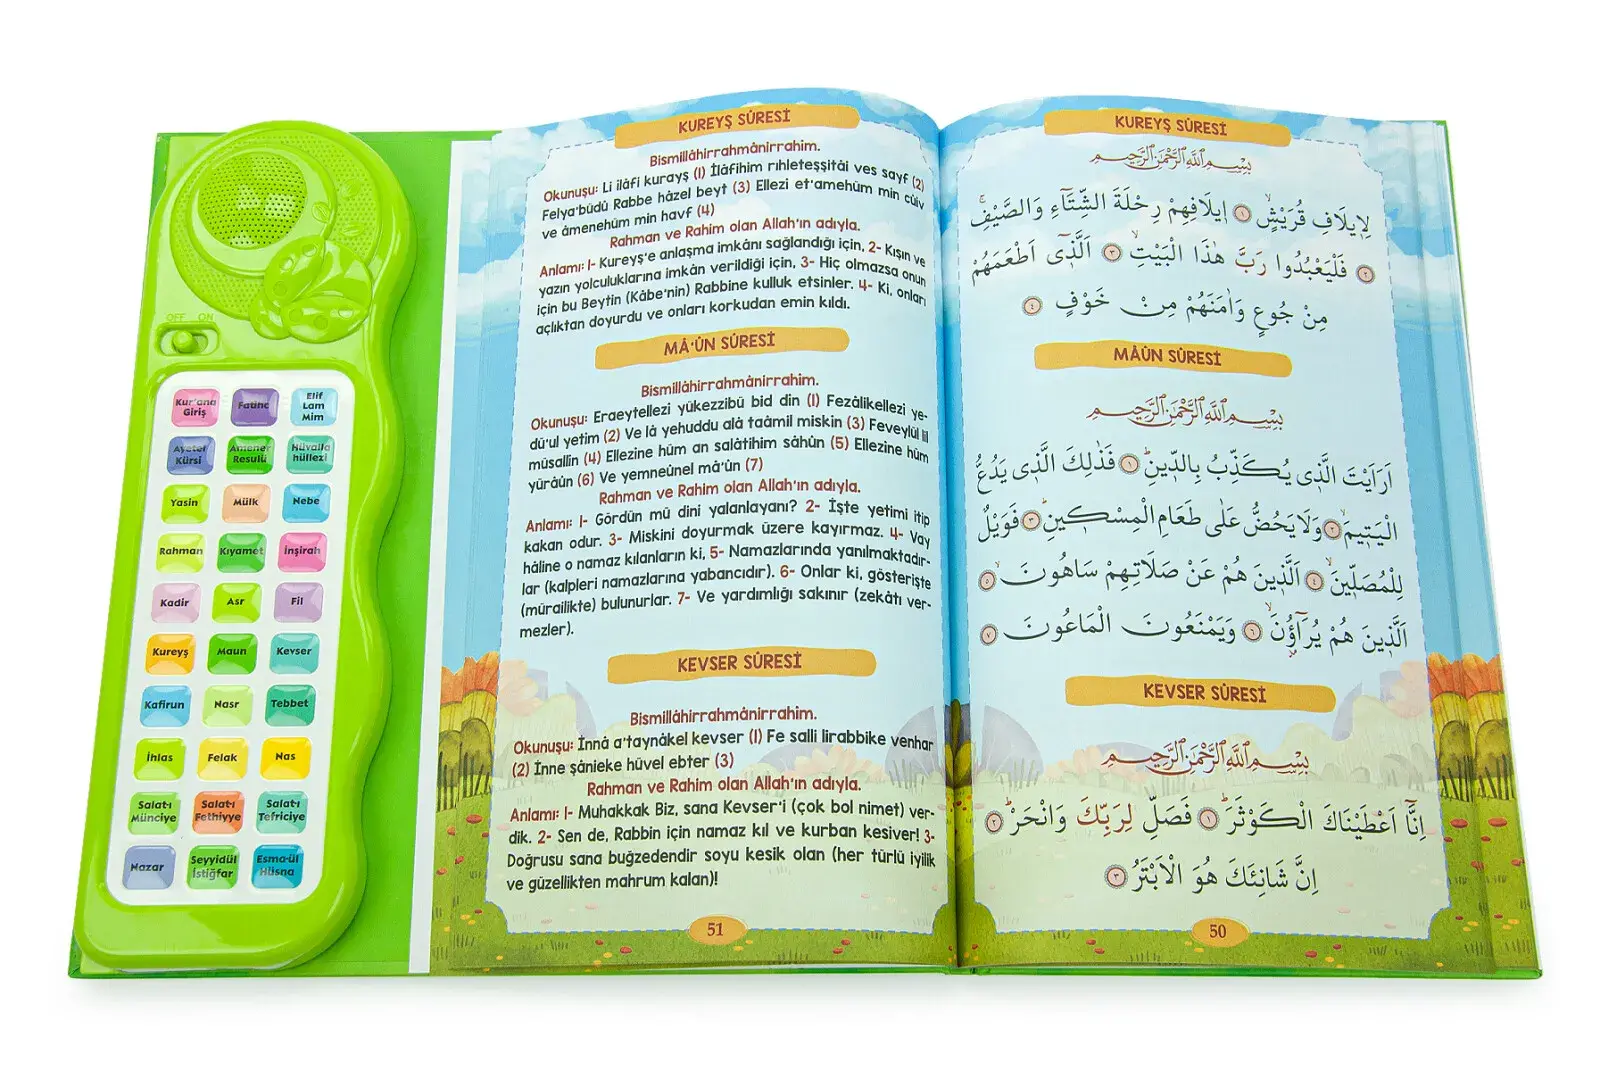 OFF ON
Kur'ana Giriş
Fatiha
Elif Lam Mim
Ayetel Kürsi
Amener Resulü
Hüvalla hüllezi
Yasin
Mülk
Nebe
Rahman
Kıyamet
İnşirah
Kadir
Asr
Fil
Kureyş
Maun
Kevser
Kafirun
Nasr
Tebbet
İhlas
Felak
Nas
Salat-ı Münciye
Salat-ı Fethiyye
Salat-ı Tefriciye
Nazar
Seyyidül İstiğfar
Esma-ül Hüsna
KUREYŞ SÛRESİ
Bismillâhirrahmânirrahim.
Okunuşu: Li ilâfi kurayş (1) İlâfihim rıhleteşşitâi ves sayf (2)
Felya'büdû Rabbe hâzel beyt (3) Ellezi et'amehüm min cûiv
ve âmenehüm min havf (4)
Rahman ve Rahim olan Allah'ın adıyla.
Anlamı: 1- Kureyş'e anlaşma imkânı sağlandığı için, 2- Kışın ve
yazın yolculuklarına imkân verildiği için, 3- Hiç olmazsa onun
için bu Beytin (Kâbe'nin) Rabbine kulluk etsinler. 4- Ki, onları
açlıktan doyurdu ve onları korkudan emin kıldı.
MÂ'ÛN SÛRESİ
Bismillâhirrahmânirrahim.
Okunuşu: Eraeytellezi yükezzibü bid din (1) Fezâlikellezi ye-
dü'ul yetim (2) Ve lâ yehuddu alâ taâmil miskin (3) Feveylül lil
müsallin (4) Ellezine hüm an salâtihim sâhûn (5) Ellezine hüm
yürâûn (6) Ve yemneûnel mâ'ûn (7)
Rahman ve Rahim olan Allah'ın adıyla.
Anlamı: 1- Gördün mü dini yalanlayanı? 2- İşte yetimi itip
kakan odur. 3- Miskini doyurmak üzere kayırmaz. 4- Vay
hâline o namaz kılanların ki, 5- Namazlarında yanılmaktadır-
lar (kalpleri namazlarına yabancıdır). 6- Onlar ki, gösterişte
(mürailikte) bulunurlar. 7- Ve yardımlığı sakınır (zekâtı ver-
mezler).
KEVSER SÛRESİ
Bismillâhirrahmânirrahim.
Okunuşu: İnnâ a'taynâkel kevser (1) Fe salli lirabbike venhar
(2) İnne şânieke hüvel ebter (3)
Rahman ve Rahim olan Allah'ın adıyla.
Anlamı: 1- Muhakkak Biz, sana Kevser'i (çok bol nimet) ver-
dik. 2- Sen de, Rabbin için namaz kıl ve kurban kesiver! 3-
Doğrusu sana buğzedendir soyu kesik olan (her türlü iyilik
ve güzellikten mahrum kalan)!
51
KUREYŞ SÛRESİ
بِسْمِ اللّٰهِ الرَّحْمٰنِ الرَّحِيمِ
لِإِيلَافِ قُرَيْشٍۙ ١ إِيلَافِهِمْ رِحْلَةَ الشِّتَٓاءِ وَالصَّيْفِۚ
٢ فَلْيَعْبُدُوا رَبَّ هٰذَا الْبَيْتِۙ ٣ اَلَّذٖٓى اَطْعَمَهُمْ
مِنْ جُوعٍ وَاٰمَنَهُمْ مِنْ خَوْفٍ ٤
MÂÛN SÛRESİ
بِسْمِ اللّٰهِ الرَّحْمٰنِ الرَّحِيمِ
اَرَاَيْتَ الَّذٖى يُكَذِّبُ بِالدّٖينِؕ ١ فَذٰلِكَ الَّذٖى يَدُعُّ
الْيَتٖيمَۙ ٢ وَلَا يَحُضُّ عَلٰى طَعَامِ الْمِسْكٖينِؕ ٣ فَوَيْلٌ
لِلْمُصَلّٖينَۙ ٤ اَلَّذٖينَ هُمْ عَنْ صَلَاتِهِمْ سَاهُونَۙ ٥
اَلَّذٖينَ هُمْ يُرَٓاؤُ۫نَۙ ٦ وَيَمْنَعُونَ الْمَاعُونَ ٧
KEVSER SÛRESİ
بِسْمِ اللّٰهِ الرَّحْمٰنِ الرَّحِيمِ
اِنَّٓا اَعْطَيْنَاكَ الْكَوْثَرَؕ ١ فَصَلِّ لِرَبِّكَ وَانْحَرْؕ ٢
اِنَّ شَانِئَكَ هُوَ الْاَبْتَرُ ٣
50